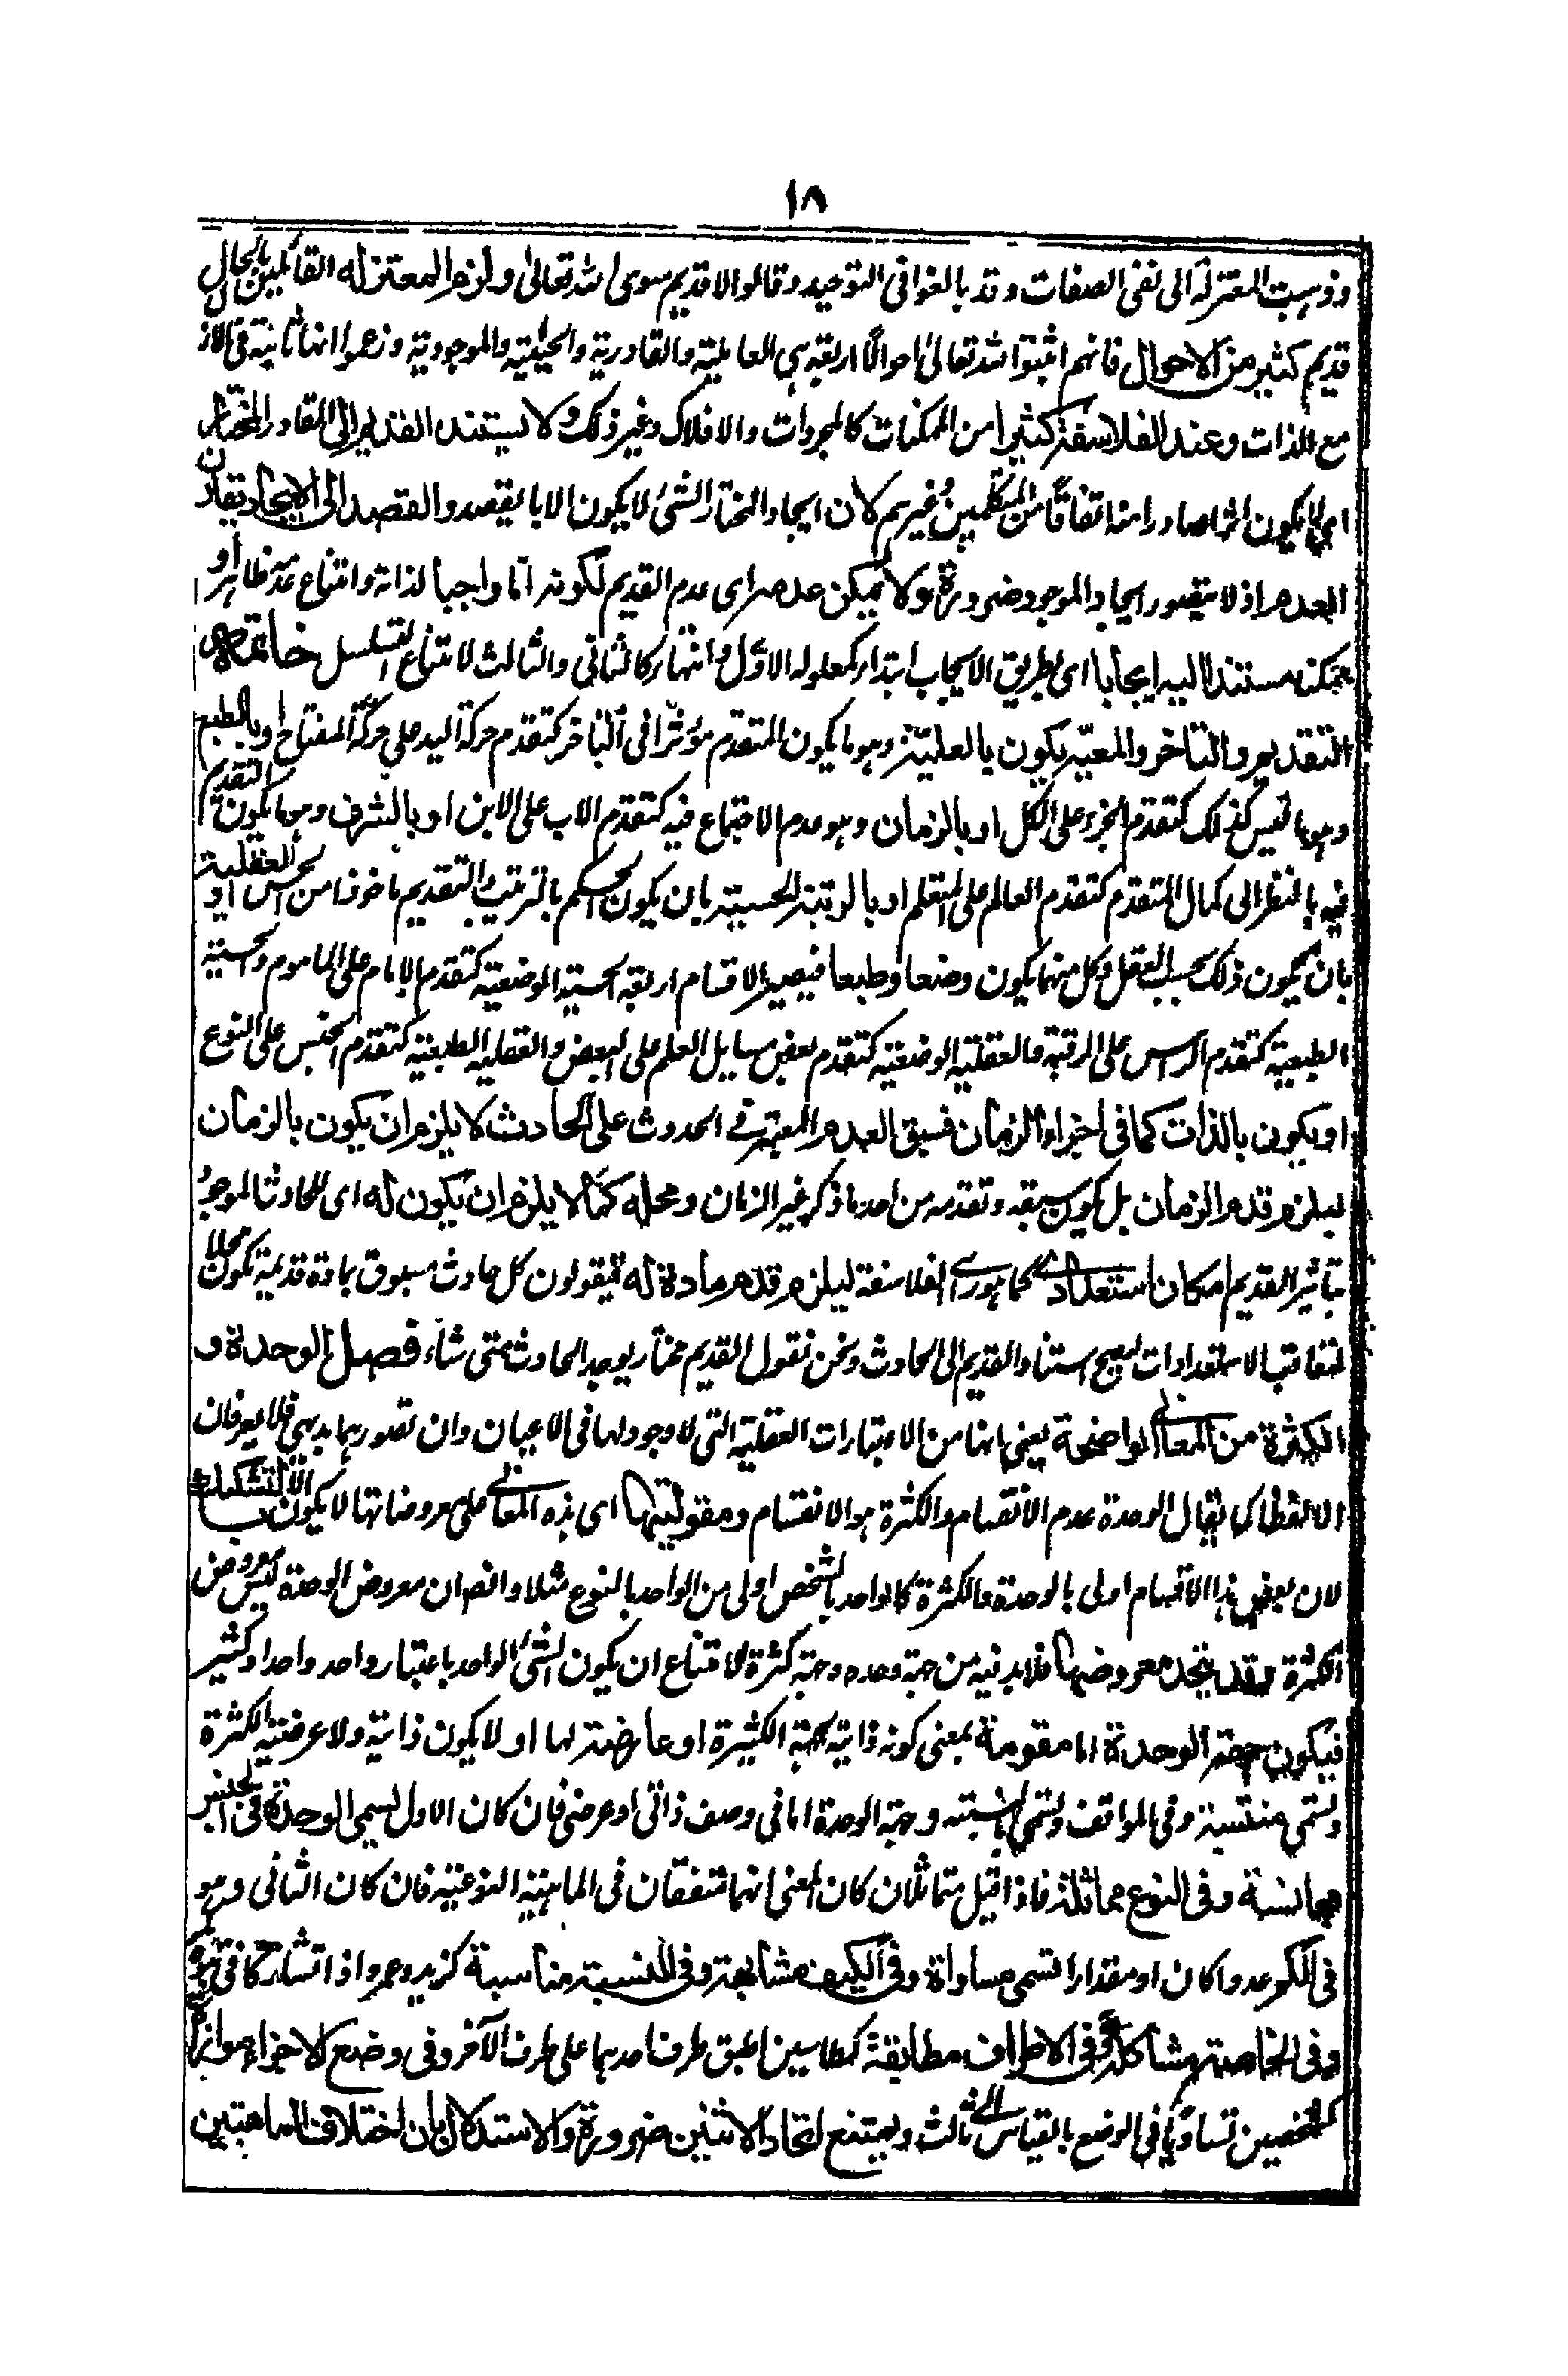 ١٨
وذهبت المعتزلة الى نفى الصفات وقد بالغوا فى التوحيد وقالوا لا قديم سوى الله تعالىٰ ولزم المعتزله القائلين بالحال
قديم كثير من الاحوال فانهم اثبتوا لله تعالىٰ احوالًا اربعة هى العالمية والقادرية والحيية والموجودية وزعموا انها ثابتة فى الازل
مع الذات وعند الفلاسفة كثيرا من الممكنات كالمجردات والافلاك وغير ذلك ولا يستند القديم الى القادر المختار
اى لا يكون اثرا صادرا منه اتفاقًا من المتكلمين وغيرهم لان ايجاد المختار الشئ لا يكون الا بالقصد والقصد الى الايجاد يقارن
العدم اذ لا يتصور ايجاد الموجود ضرورة ولا يمكن عدمه اى عدم القديم لكونه اما واجبا لذاته وامتناع عدمه ظاهر او
ممكنا مستندا اليه ايجابا اى بطريق الايجاب ابتداء كمعلوله الاوّل او انتهاء كالثانى والثالث لامتناع التسلسل خاتمة
التقديم والتاخر والمعية يكون بالعلية وهو ما يكون المتقدم مؤثرا فى التاخر كتقدم حركة اليد على حركة المفتاح او بالطبع
وهو ما ليس كذلك كتقدم الجزء على الكل او بالزمان وهو عدم الاجتماع فيه كتقدم الاب على الابن او بالشرف وهو ما يكون التقدم
فيه بالنظر الى كمال المتقدم كتقدم العالم على المتعلم او بالرتبة الحسية بان يكون الحكم بالترتيب والتقديم ماخوذا من الحس او العقلية
بان يكون ذلك بحسب العقل وكل منهما يكون وضعا وطبعا فيصير الاقسام اربعة الحسية الوضعية كتقدم الامام على الماموم والحسية
الطبعية كتقدم الراس على الرقبة والعقلية الوضعية كتقدم بعض مسايل العلم على البعض والعقلية الطبعية كتقدم الجنس على النوع
او يكون بالذات كما فى اجزاء الزمان فسبق العدم المعتبر فى الحدوث على الحادث لا يلزم ان يكون بالزمان
ليلزم قدم الزمان بل يكون سبقه وتقدمه من احد ما ذكر غير الزمان ومحله كما لا يلزم ان يكون له اى للحادث الموجود
بتاثير القديم امكان استعدادى كما هو راى الفلاسفة ليلزم قدم مادة له فيقولون كل حادث مسبوق بمادة قديمة تكون محلا
لتعاقب الاستعدادات ليصح استناد القديم الى الحادث ونحن نقول القديم مختار يوجد الحادث متى شاء فصل الوحدة و
الكثرة من المعانى الواضحة يعنى انها من الاعتبارات العقلية التى لا وجود لها فى الاعيان وان تصورهما بديهى فلا يعرفان
الا لفظا كما يقال الوحدة عدم الانقسام والكثرة هو الانقسام ومقوليتها اى هذه المعانى على معروضاتها لا يكون الا بالتشكيك
لان بعض هذا الاقسام اولى بالوحدة والكثرة كالواحد بالشخص اولى من الواحد بالنوع مثلا وانه ان معروض الوحدة ليس معروض
الكثرة وقد يتحد معروضهما فلابد فيه من جهة وحده وجهة كثرة لامتناع ان يكون الشئ الواحد باعتبار واحد واحدا وكثير
فيكون جهة الوحدة اما مقومة بمعنى كونه ذاتية لجهة الكثيرة او عارضة لها او لا يكون ذاتية ولا عرضية لكثرة
وتسمى منتسبة وفى المواقف وتسمى بالنسبته وجهة الوحدة اما فى وصف ذاتى او عرضى فان كان الاول يسمى الوحدة فى الجنس
مجانسة وفى النوع مماثلة فاذا قيل متماثلان كان المعنى انهما متفقان فى الماهية النوعية فان كان الثانى وهو
فى الكم عددا كان او مقدارا تسمى مساواة وفى الكيف مشابهة وفى النسبة مناسبة كزيد وعمرو اذا تشاركا فى
وفى الخاصة مشاكلة وفى الاطراف مطابقة كطاسين اطبق طرف احدهما على طرف الآخر وفى وضع الاجزاء موازاة
كشخصين تساويا فى الوضع بالقياس الى ثالث ويمتنع اتحاد الاثنين ضرورة والاستدلال بان اختلاف الماهيتين